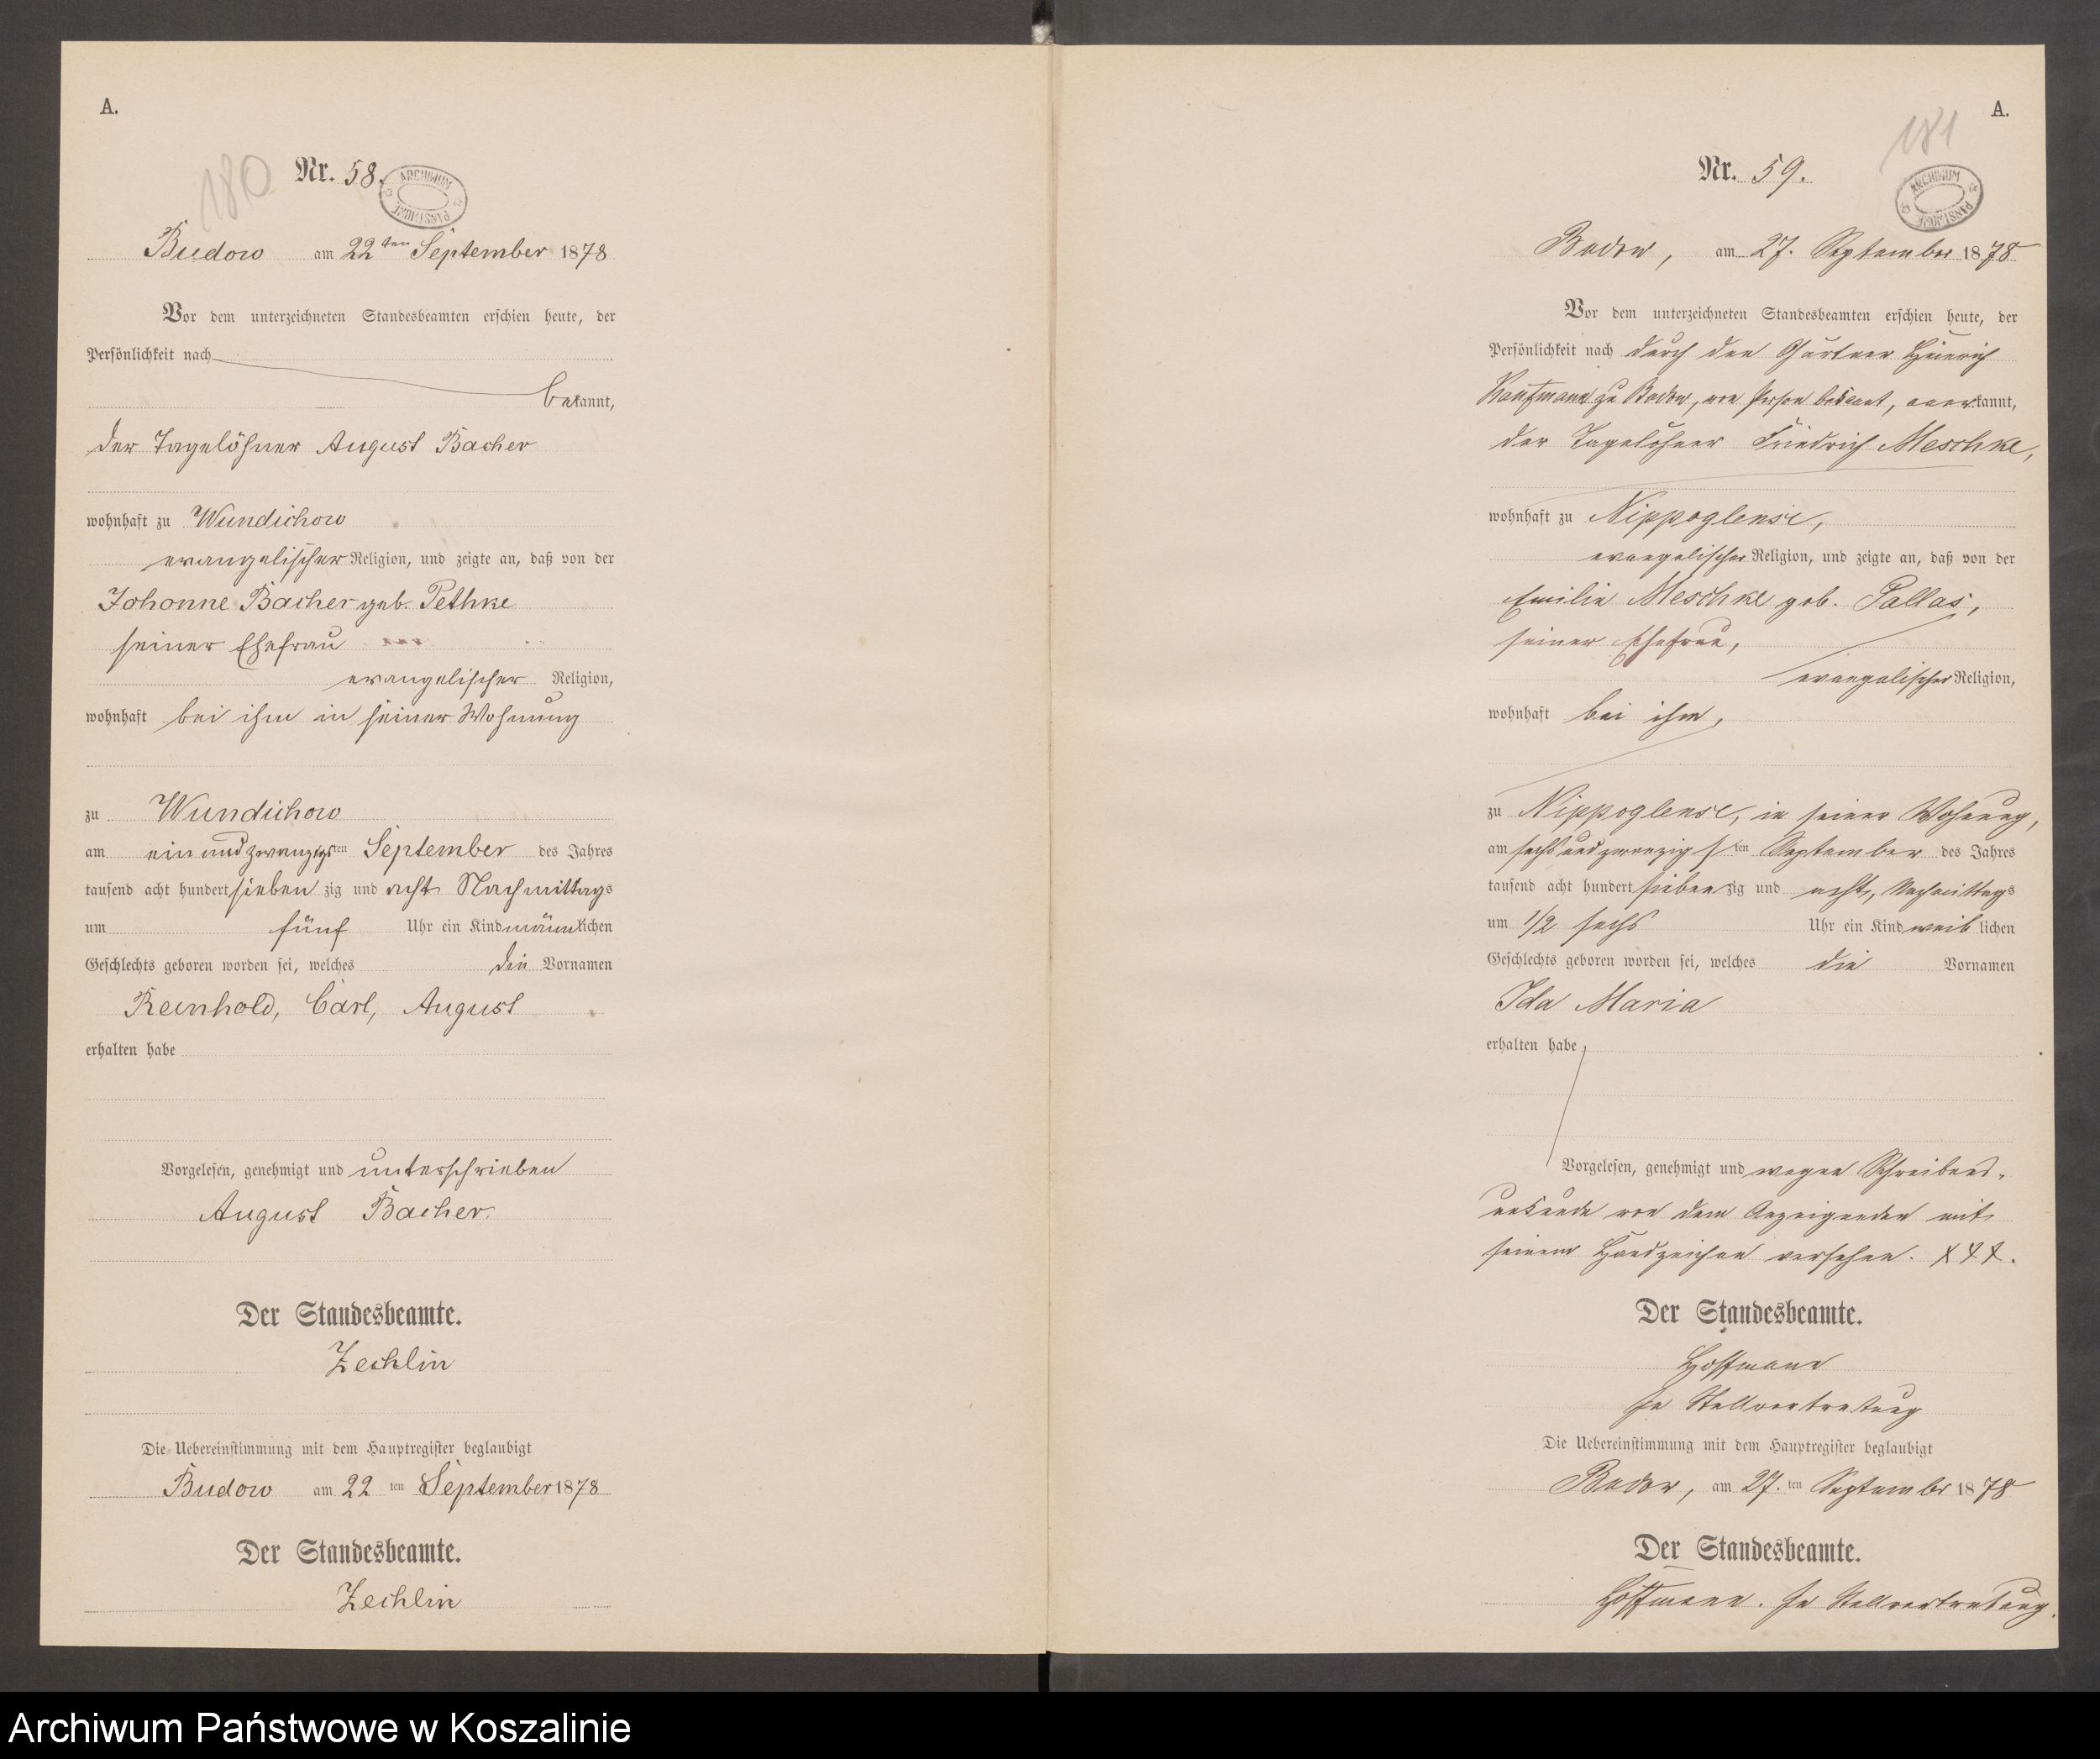 A.
180
Nr. 58.
ARCHIWUM PAŃSTWOWE
Budow am 22ten September 1878
Vor dem unterzeichneten Standesbeamten erschien heute, der
Persönlichkeit nach
bekannt,
der Tagelöhner August Bacher
wohnhaft zu Wundichow
evangelischer Religion, und zeigte an, daß von der
Johanne Bacher geb. Pethke
seiner Ehefrau
evangelischer Religion,
wohnhaft bei ihm in seiner Wohnung
zu Wundichow
am ein und zwanzigsten September des Jahres
tausend acht hundert sieben zig und acht Nachmittags
um fünf Uhr ein Kind männlichen
Geschlechts geboren worden sei, welches die Vornamen
Reinhold, Carl, August
erhalten habe
Vorgelesen, genehmigt und unterschrieben
August Bacher.
Der Standesbeamte.
Zechlin
Die Uebereinstimmung mit dem Hauptregister beglaubigt
Budow am 22 ten September 1878
Der Standesbeamte.
Zechlin
A.
181
Nr. 59.
ARCHIWUM PAŃSTWOWE
Budow, am 27. September 1878
Vor dem unterzeichneten Standesbeamten erschien heute, der
Persönlichkeit nach durch den Gärtner Heinrich
Kaufmann zu Budow, von Person bekannt, anerkannt,
der Tagelöhner Friedrich Meschke,
wohnhaft zu Nippoglense,
evangelischer Religion, und zeigte an, daß von der
Emilie Meschke geb. Pallas,
seiner Ehefrau,
evangelischer Religion,
wohnhaft bei ihm,
zu Nippoglense, in seiner Wohnung,
am sechs und zwanzigsten September des Jahres
tausend acht hundert sieben zig und acht, Nachmittags
um 1/2 sechs Uhr ein Kind weiblichen
Geschlechts geboren worden sei, welches die Vornamen
Ida Maria
erhalten habe,
Vorgelesen, genehmigt und wegen Schreibens-
unkunde von dem Anzeigenden mit
seinem Handzeichen versehen. XXX.
Der Standesbeamte.
Hoffmann
In Stellvertretung
Die Uebereinstimmung mit dem Hauptregister beglaubigt
Budow, am 27. ten September 1878
Der Standesbeamte.
Hoffmann. In Stellvertretung.
Archiwum Państwowe w Koszalinie